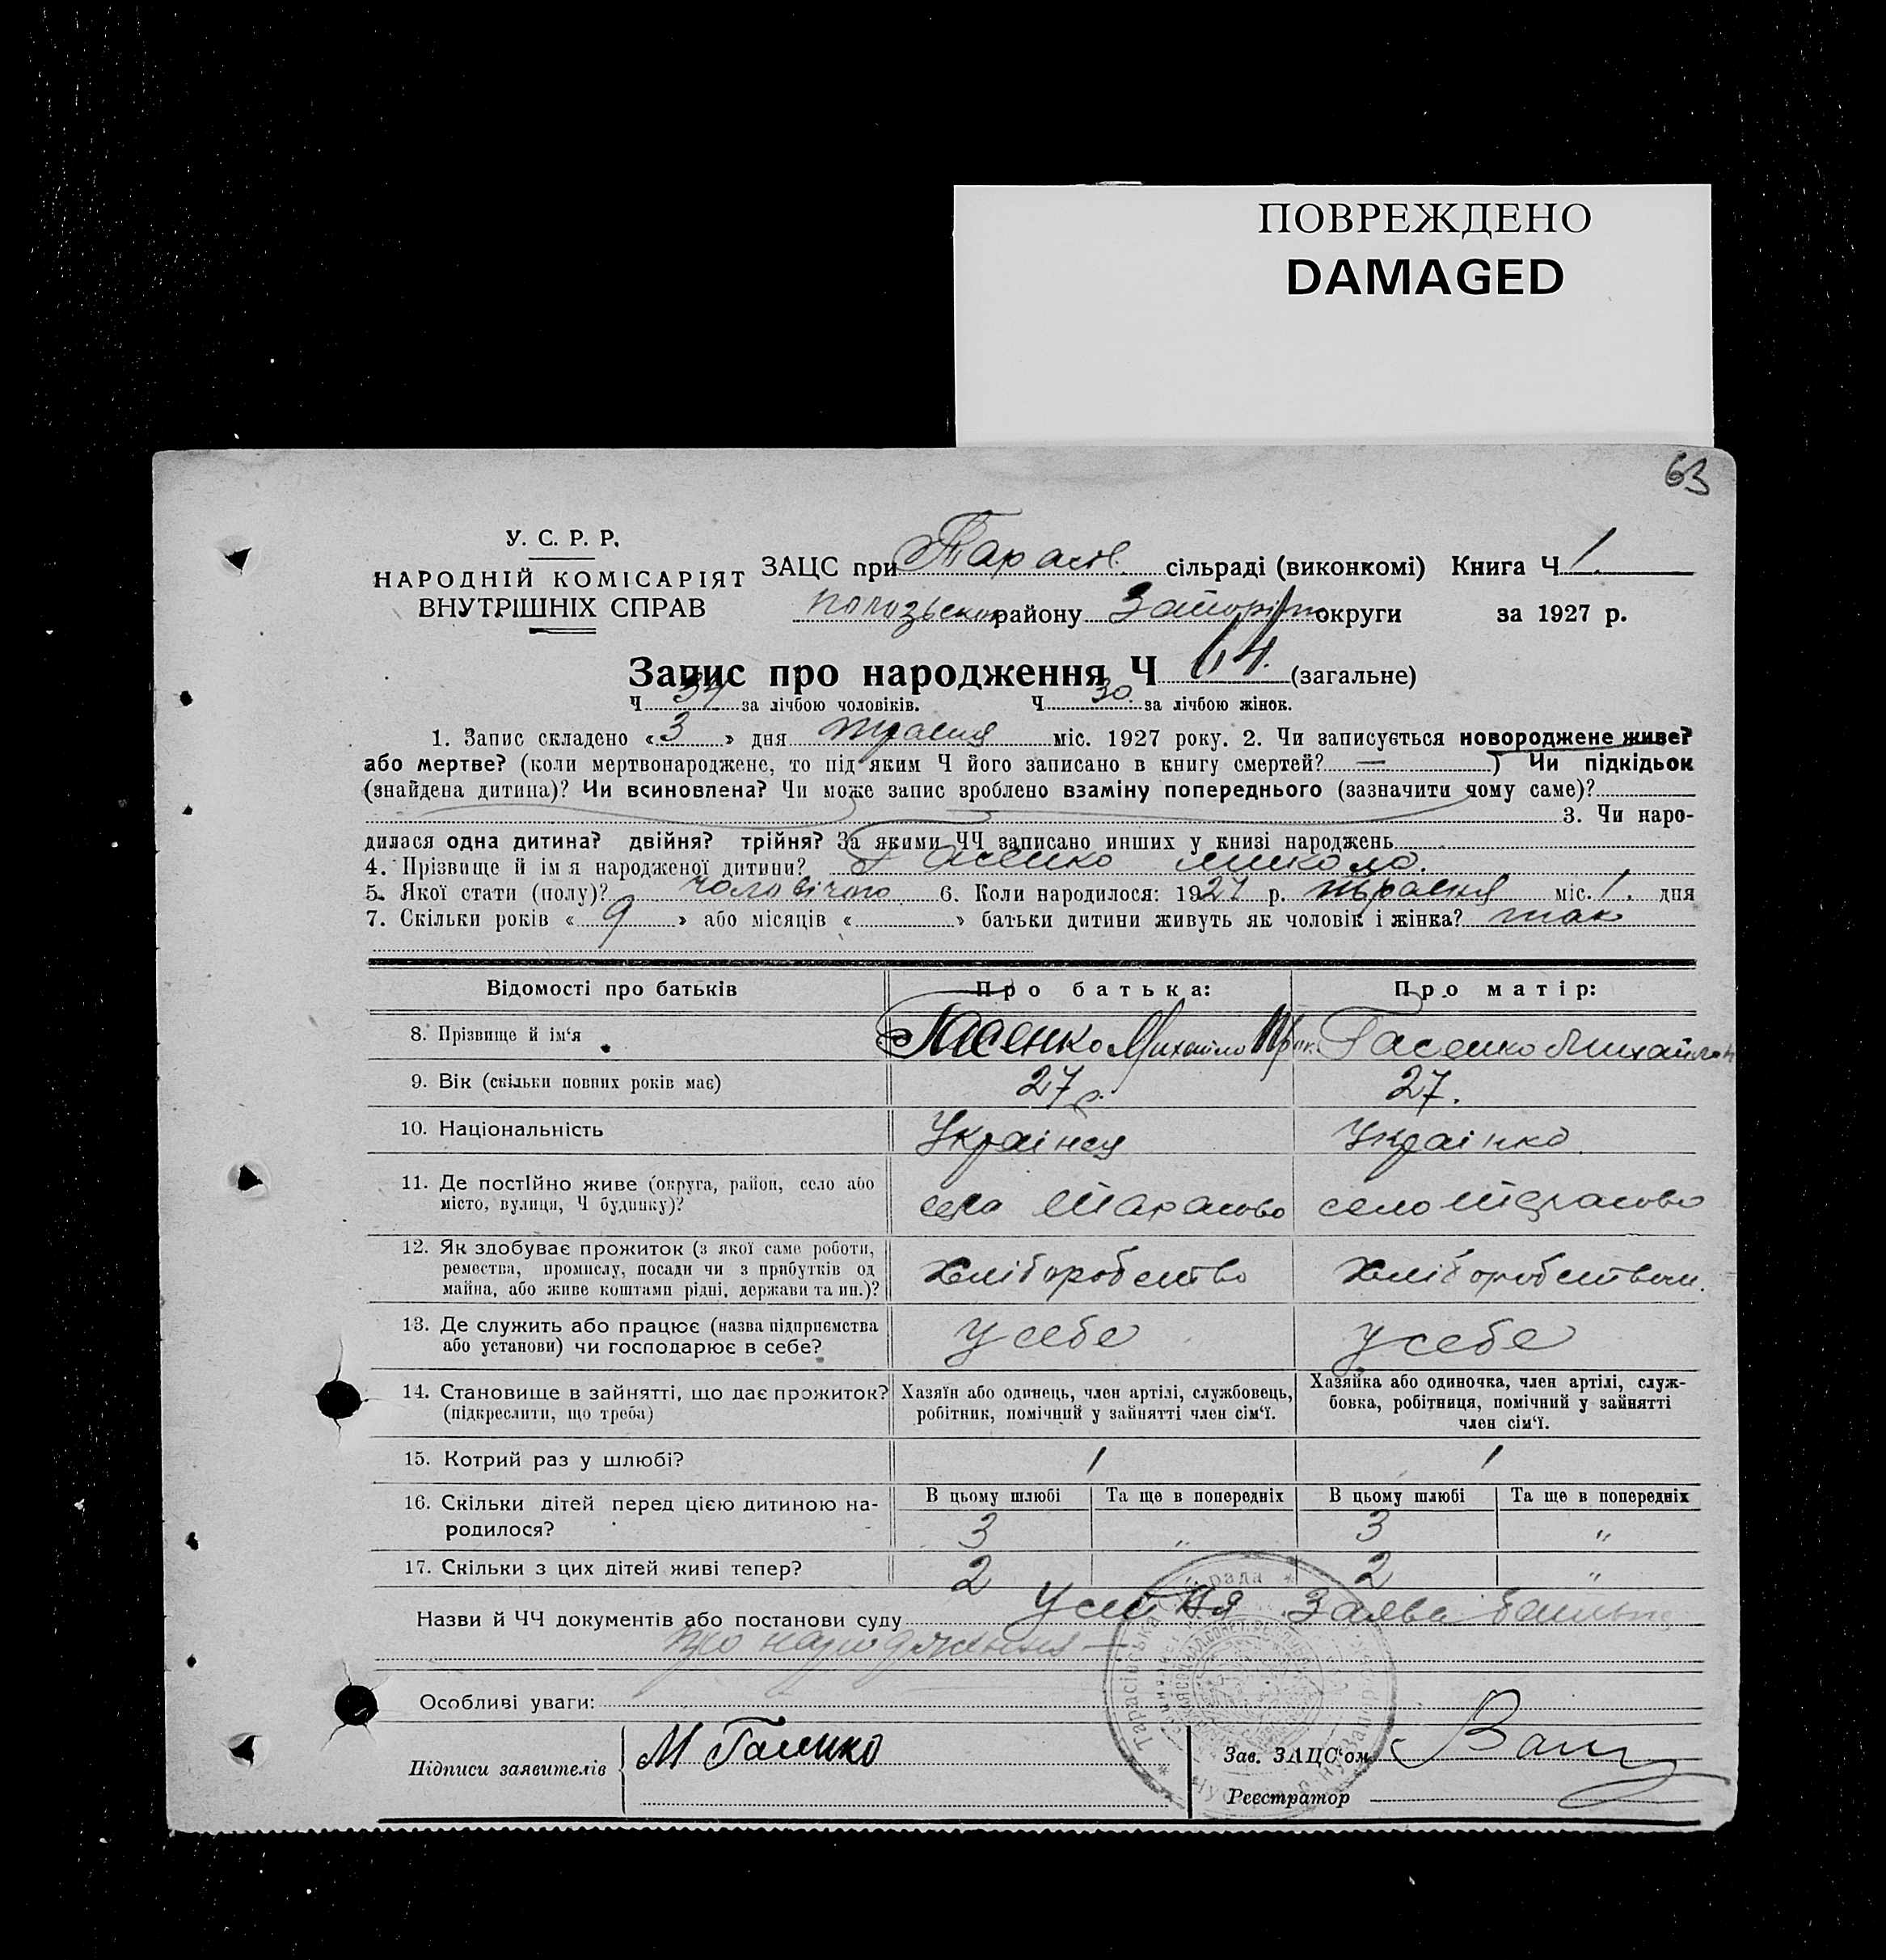 ПОВРЕЖДЕНО
DAMAGED
63
У. С. Р. Р.
НАРОДНІЙ КОМІСАРІЯТ
ВНУТРІШНІХ СПРАВ
ЗАЦС при Тарасів. сільраді (виконкомі) Книга Ч 1.
району округи за 1927 р.
Запис про народження Ч 64. (загальне)
Ч 34 за лічбою чоловіків. Ч 30. за лічбою жінок.
1. Запис складено « 3 » дня травня міс. 1927 року. 2. Чи записується новороджене живе?
або мертве? (коли мертвонароджене, то під яким Ч його записано в книгу смертей? — ) Чи підкідьок
(знайдена дитина)? Чи всиновлена? Чи може запис зроблено взаміну попереднього (зазначити чому саме)?
3. Чи наро-
дилася одна дитина? двійня? трійня? За якими ЧЧ записано инших у книзі народжень
4. Прізвище й ім я народженої дитини? Гасенко Микола.
5. Якої стати (полу)? чоловічого 6. Коли народилося: 1927 р. травня міс. 1. дня
7. Скільки років « 9 » або місяців « » батьки дитини живуть як чоловік і жінка? так
Відомості про батьків Про батька: Про матір:
8. Прізвище й ім‘я Гасенко Михайло Гасенко
9. Вік (скільки повних років має) 27 р. 27.
10. Національність Українец Українка
11. Де постійно живе (округа, район, село або
місто, вулиця, Ч будинку)? село Тарасово село Тарасово
12. Як здобуває прожиток (з якої саме роботи,
ремества, промислу, посади чи з прибутків од
майна, або живе коштами рідні, держави та ин.)? Хліборобство
13. Де служить або працює (назва підприємства
або установи) чи господарює в себе? У себе У себе
14. Становище в зайнятті, що дає прожиток?
(підкреслити, що треба)
Хазяїн або одинець, член артілі, службовець,
робітник, помічний у зайнятті член сім‘ї.
Хазяйка або одиночка, член артілі, служ-
бовка, робітниця, помічний у зайнятті
член сім‘ї.
15. Котрий раз у шлюбі? 1 1
16. Скільки дітей перед цією дитиною на-
родилося?
В цьому шлюбі Та ще в попередніх В цьому шлюбі Та ще в попередніх
3 „ 3 „
17. Скільки з цих дітей живі тепер? 2 2 „
Назви й ЧЧ документів або постанови суду Устня Заява батька
про народження —
Особливі уваги:
Підписи заявителів М Гасенко
Зав. ЗАЦС‘ом
Реєстратор